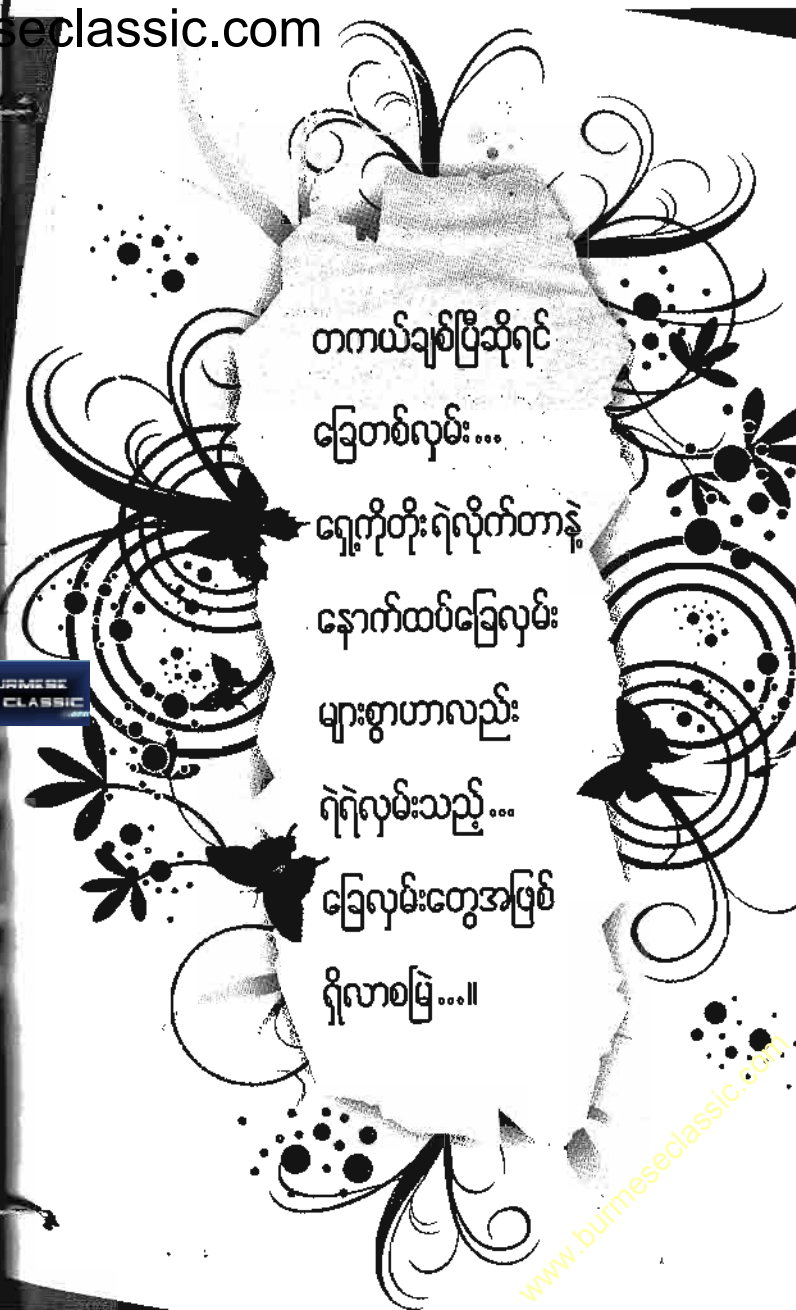 seclassic.com
တကယ်ချစ်ပြီဆိုရင်
ခြေတစ်လှမ်း...
ရှေ့ကိုတိုးရဲလိုက်တာနဲ့
နောက်ထပ်ခြေလှမ်း
များစွာဟာလည်း
ရဲရဲလှမ်းသည့်...
ခြေလှမ်းတွေအဖြစ်
ရှိလာစမြဲ...။
URMESE
CLASSIC
www.burmeseclassic.com